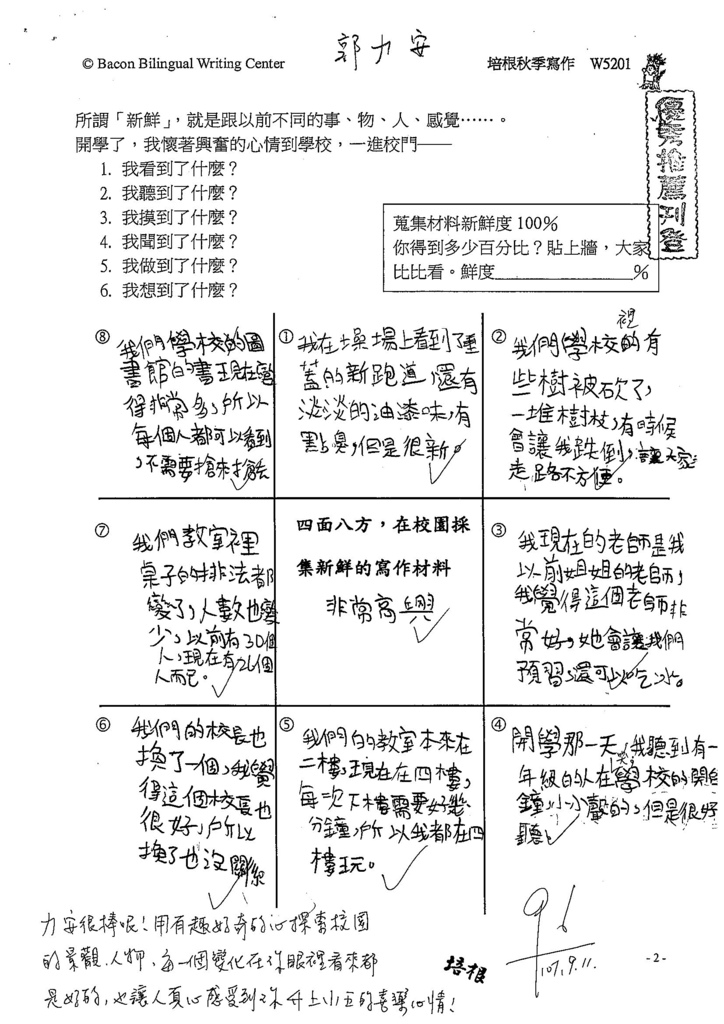 郭力安
© Bacon Bilingual Writing Center
培根秋季寫作 W5201
優秀推薦刊登
所謂「新鮮」，就是跟以前不同的事、物、人、感覺……。
開學了，我懷著興奮的心情到學校，一進校門——
1. 我看到了什麼？
2. 我聽到了什麼？
3. 我摸到了什麼？
4. 我聞到了什麼？
5. 我做到了什麼？
6. 我想到了什麼？
蒐集材料新鮮度 100%
你得到多少百分比？貼上牆，大家
比比看。鮮度＿＿＿＿＿＿＿%
⑧
我們學校的圖
書館的書現在變
得非常多，所以
每個人都可以看到
，不需要搶來搶去
①
我在操場上看到了重
蓋的新跑道，還有
淡淡的油漆味，有
點臭，但是很新。
②
我們學校裡的有
些樹被砍了，
一堆樹枝，有時候
會讓我跌倒，讓大家
走路不方便。
⑦
我們教室裡
桌子的排法都
變了，人數也變
少，以前有30個
人，現在有26個
人而已。
四面八方，在校園採
集新鮮的寫作材料
非常高興
③
我現在的老師是我
以前姐姐的老師，
我覺得這個老師非
常好，她會讓我們
預習，還可以吃冰。
⑥
我們的校長也
換了一個，我覺
得這個校長也
很好，所以
換了也沒關係
⑤
我們的教室本來在
二樓，現在在四樓，
每次下樓需要好幾
分鐘，所以我都在四
樓玩。
④
開學那一天，我聽到有一
年級的人在學校的
鐘，小小聲的，但是很好
聽。
力安很棒呢！用有趣好奇的心探索校園
的景觀、人物，每一個變化在你眼裡看來都
是好的，也讓人真心感受到你升上小五的喜樂心情！
培根
96
107.9.11.
-2-